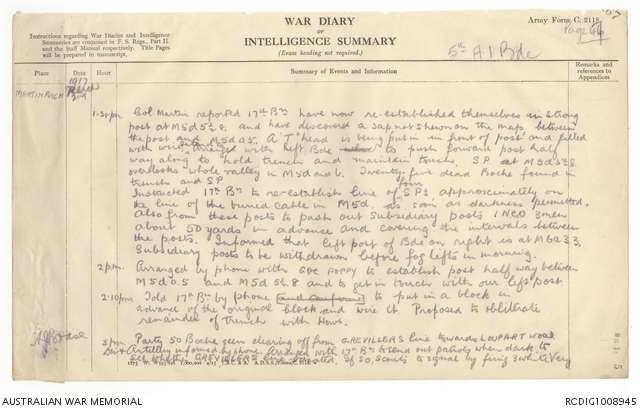 WAR DIARY
OR
INTELLIGENCE SUMMARY
(Erase heading not required.)
Army Form C. 2118.
Page 64
5th A I Bde
Instructions regarding War Diaries and Intelligence
Summaries are contained in F. S. Regs., Part II.
and the Staff Manual respectively. Title Pages
will be prepared in manuscript.
Place
Date
Hour
Summary of Events and Information
Remarks and
references to
Appendices
1917
March
MARTINPUICH
2nd
1.30pm Col Martin reported 17th Bn have now re-established themselves in strong
post at M5d5½.8. and have discovered a sap not shewn on the maps between
the post and M5d0.5. A "T" head is being put in in front of post and filled
with wire, arranged with left Bde to push forward post half
way along to hold trench and maintain touch. S.P. at M5d5½.8
overlooks whole valley in M5d and b. Twenty-five dead Boche found in
trench and S.P.
Instructed 17th Bn to re-establish line of four SPs approximately on
the line of the buried cable in M5d, as soon as darkness permitted,
also from these posts to push out subsidiary posts 1 NCO 3 men
about 50 yards in advance and covering the intervals between
the posts. Informed that left post of Bde on right is at M6a3.3.
Subsidiary posts to be withdrawn before fog lifts in morning.
2pm. Arranged by phone with GOC POPPY to establish post half way between
M5d0.5 and M5d5½.8 and to get in touch with our left post.
2.10pm Told 17th Bn by phone to put in a block in
advance of the original block and wire it. Proposed to obliterate
remainder of trench with Hows.
3pm Party 50 Boche seen clearing off from GREVILLERS line towards LOUPART WOOD
Div Artillery informed by phone. Arranged with 17th Bn to send out patrols when dark to
see whether GREVILLERS line deserted, if so, scouts to signal by firing 3 white Very
AUSTRALIAN WAR MEMORIAL
RCDIG1008945